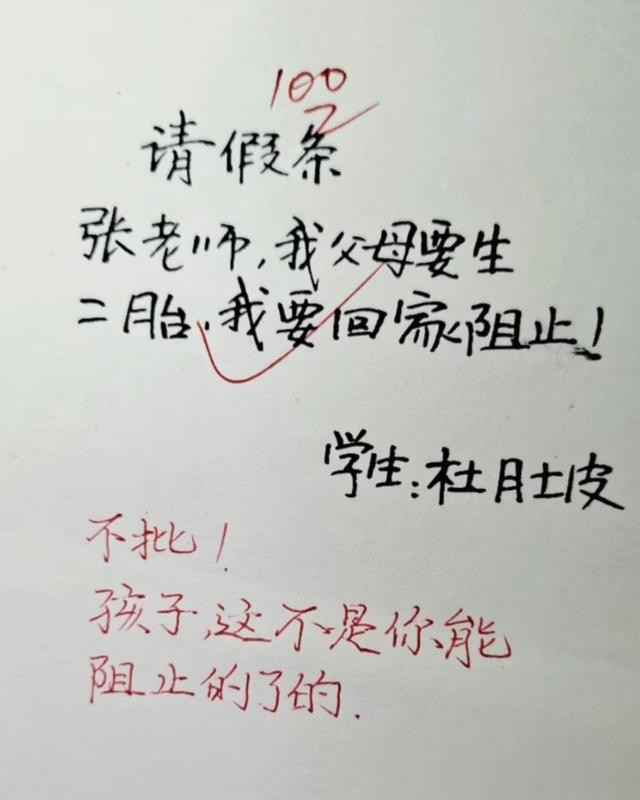 100
请假条
张老师,我父母要生
二胎,我要回家阻止!
学生:杜肚皮
不批!
孩子,这不是你能
阻止的了的.